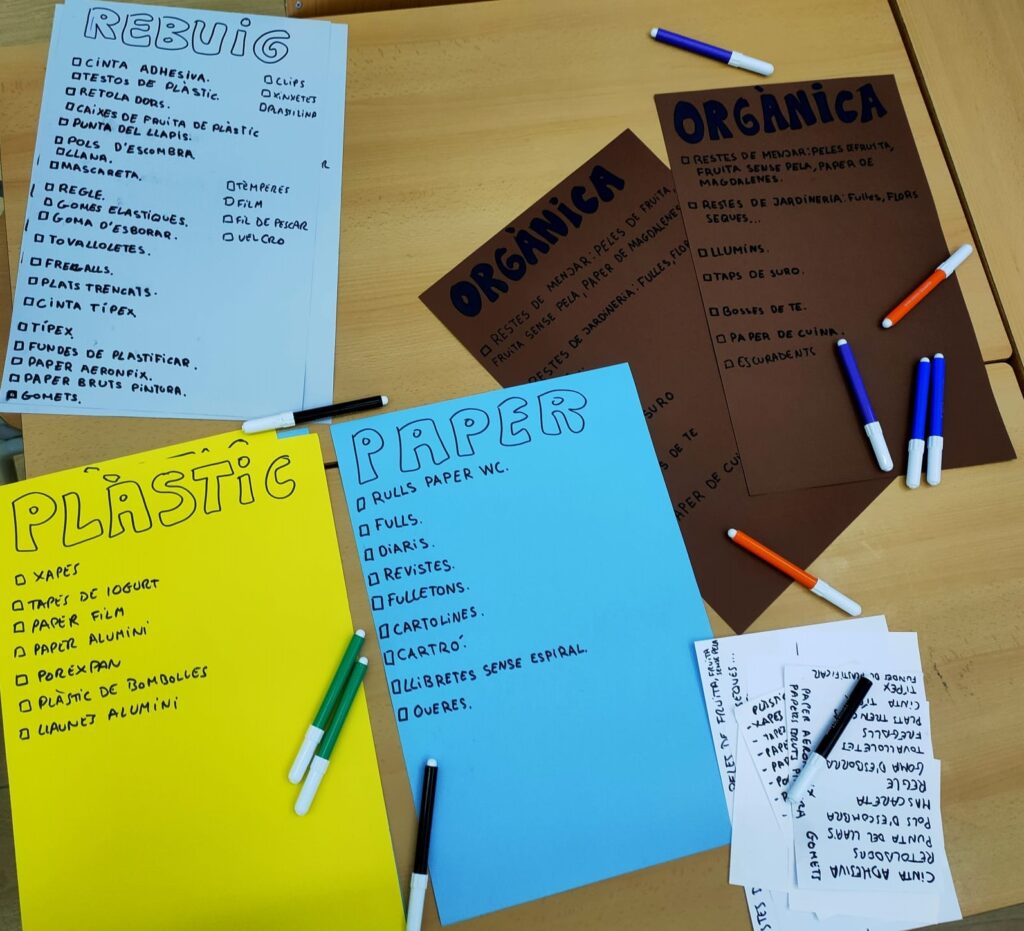 REBUiG
CiNTA ADHESiVA.
TESTOS DE PLÀSTIC.
RETOLADORS.
CAiXES DE FRUiTA DE PLÀSTiC
PUNTA DEL LLAPiS.
POLS D'ESCOMBRA
LLANA.
MASCARETA.
REGLE.
GOMES ELASTiQUES.
GOMA D'ESBORAR.
TOVALLOLETES.
FREGALLS.
PLATS TRENCATS.
CiNTA TÍPEX
TÍPEX.
FUNDES DE PLASTiFiCAR.
PAPER AERONFiX.
PAPER BRUTS PiNTURA.
GOMETS.
CLiPS
XiNXETES
PLASTiLiNA
TÈMPERES
FiLM
FiL DE PESCAR
VELCRO
ORGÀNiCA
RESTES DE MENJAR: PELES DE FRUiTA,
FRUiTA SENSE PELA, PAPER DE
MAGDALENES.
RESTES DE JARDiNERiA: FULLES, FLORS
SEQUES...
LLUMiNS.
TAPS DE SURO.
BOSSES DE TE.
PAPER DE CUiNA.
ESCURADENTS
ORGÀNiCA
RESTES DE MENJAR: PELES DE FRUiTA,
FRUiTA SENSE PELA, PAPER DE MAGDALENES
RESTES DE JARDiNERiA: FULLES, FLO
SURO
DE TE
PAPER DE CUi
PLÀSTiC
XAPES
TAPES DE iOGURT
PAPER FiLM
PAPER ALUMiNi
POREXPAN
PLÀSTiC DE BOMBOLLES
LLAUNES ALUMiNi
PAPER
RULLS PAPER WC.
FULLS.
DiARiS.
REViSTES.
FULLETONS.
CARTOLiNES.
CARTRÓ.
LLiBRETES SENSE ESPiRAL.
OUERES.
PELES DE FRUiTA, FRUiTA
SENSE PELA
SEQUES...
PLÀSTi
- XAPES
PAPER AERON
PAPERS BRUTS Pi
GOMETS
FUNDES DE PLASTiFiCAR
TÍPEX
CiNTA TÍ
PLATS TREN
FREGALLS
TOVALLOLETES
GOMA D'ESBORRA
REGLE
MASCARETA
POLS D'ESCOMBRA
PUNTA DEL LLAPiS
RETOLADORS
CiNTA ADHESiVA